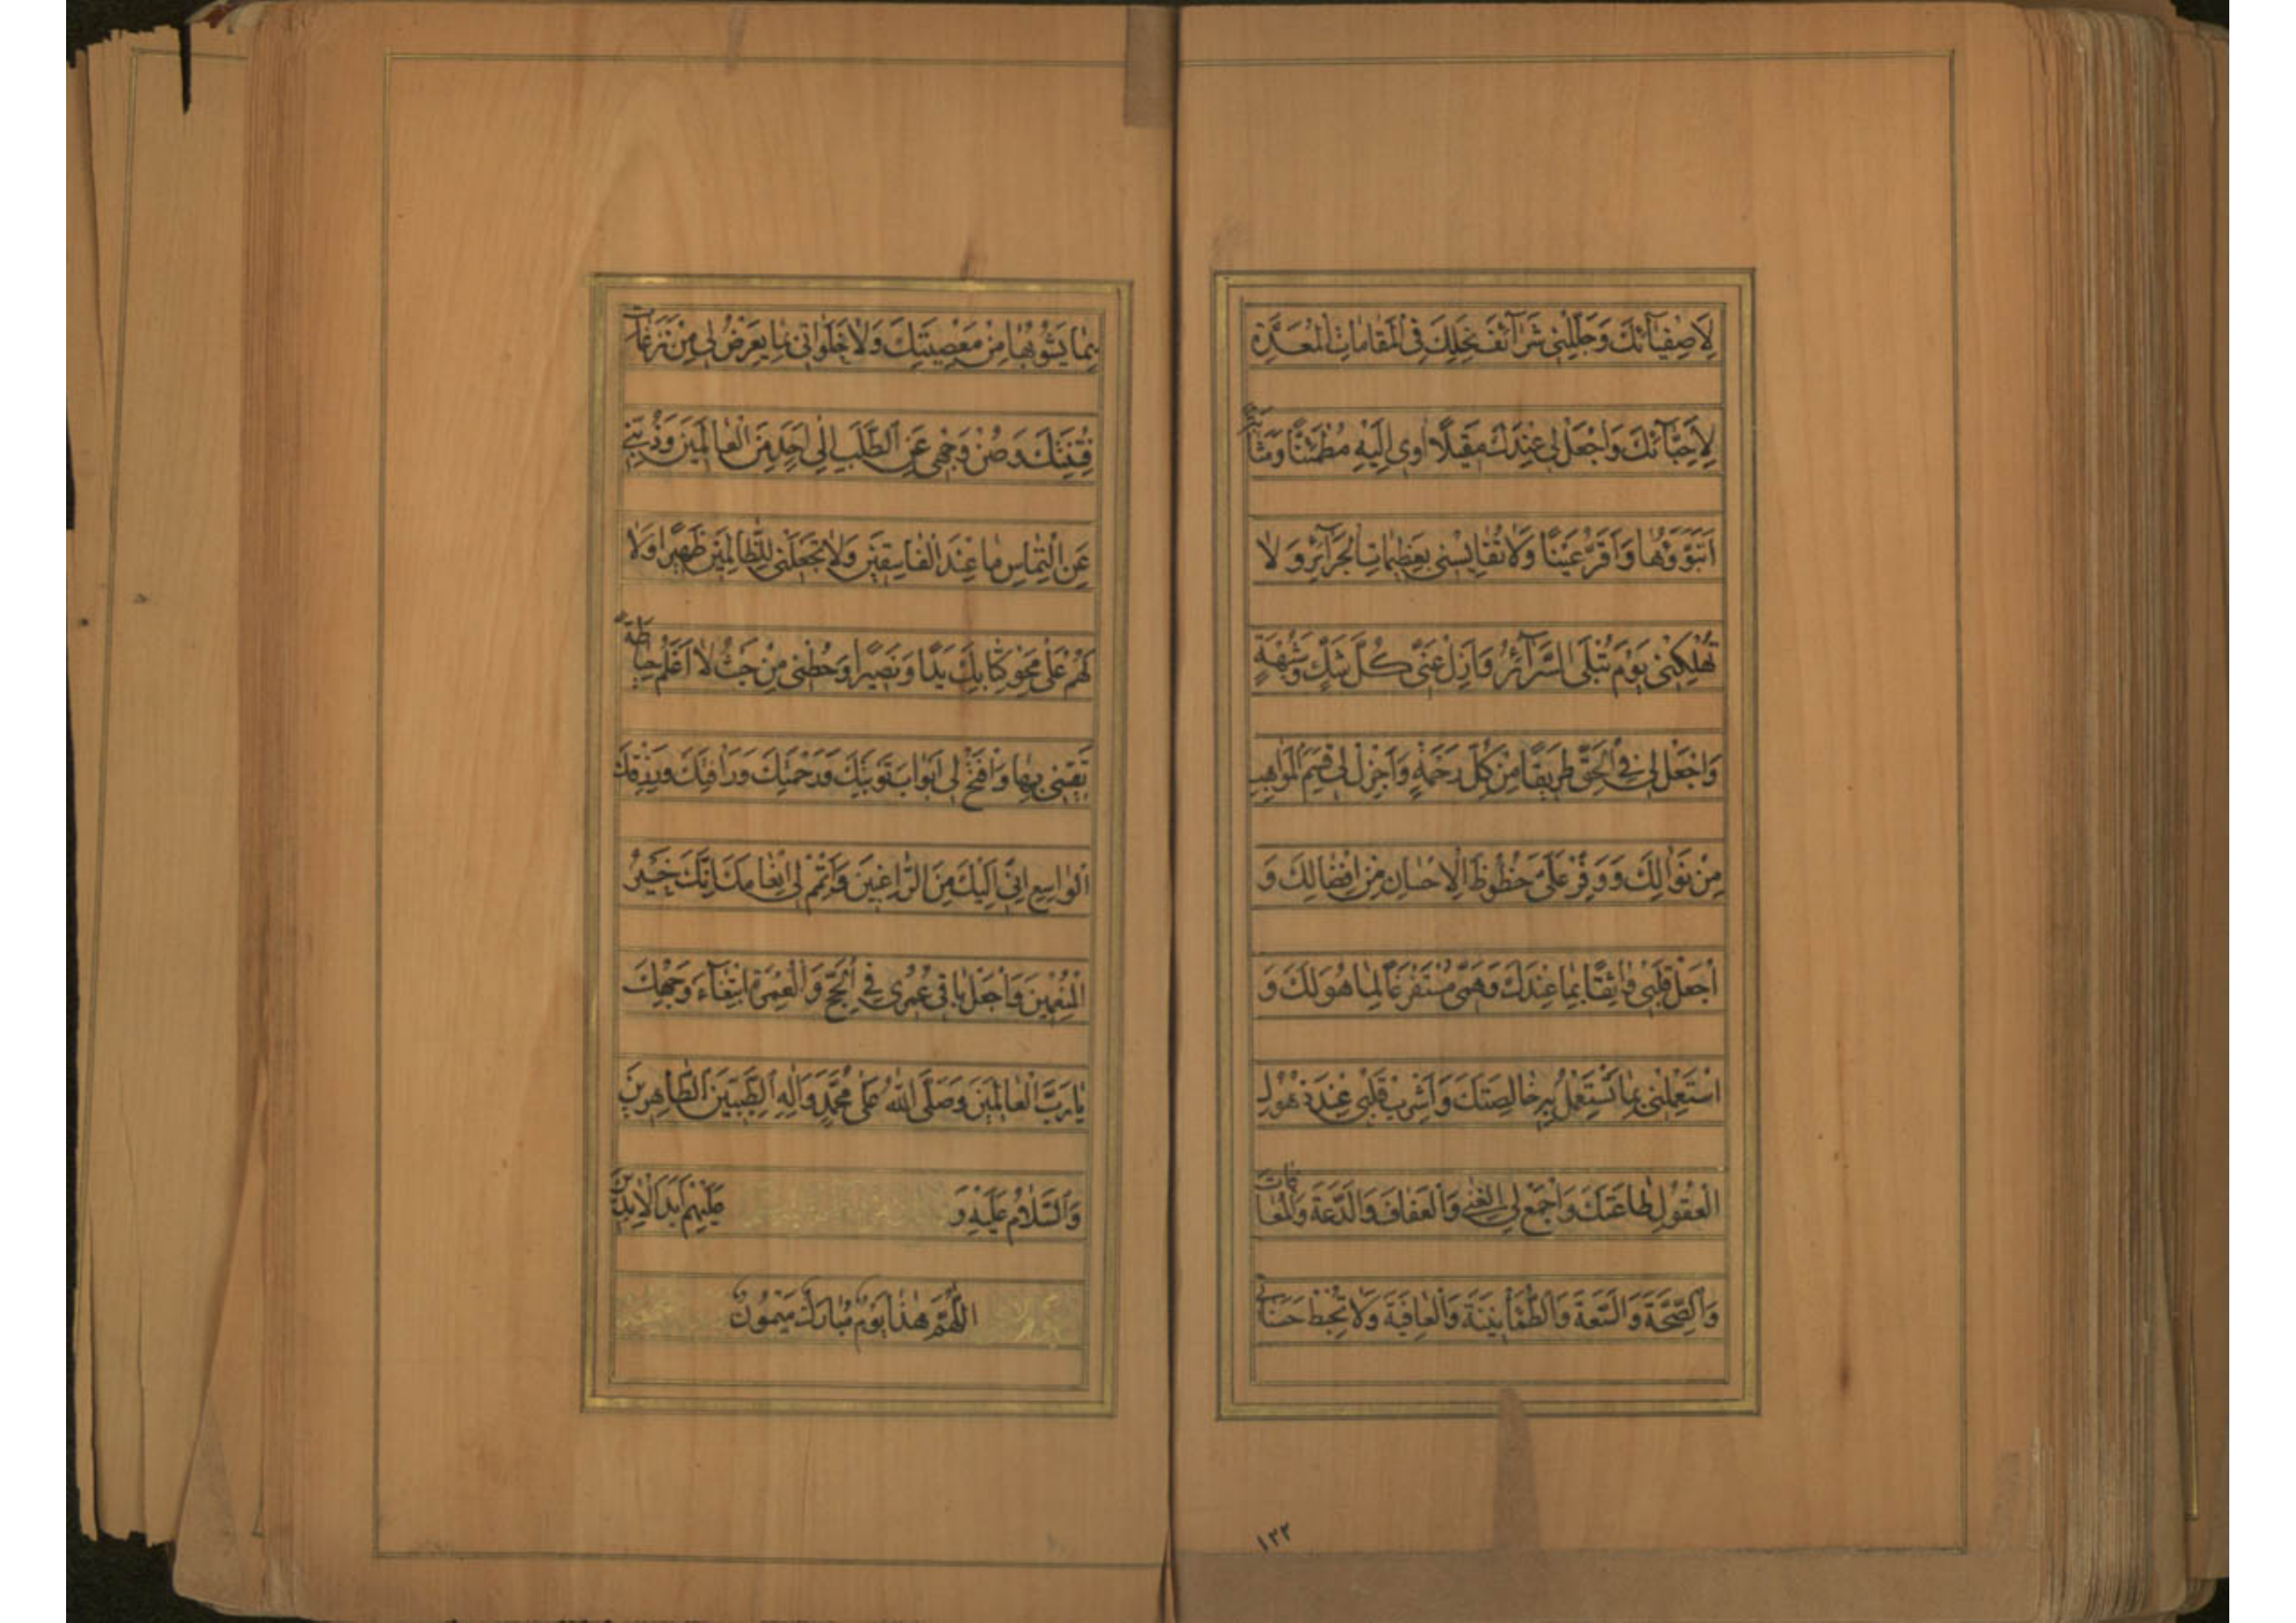 لِاَصْفِيَآئِكَ وَجَلِّلْنِي شَرَآئِفَ نِحَلِكَ فِي الْمَقٰامٰاتِ الْمُعَدَّةِ
لِاَحِبَّآئِكَ وَاجْعَلْ لِي عِنْدَكَ مَقِيلًا اٰوِي اِلَيْهِ مُطْمَئِنًّا وَمَثٰابَةً
اَتَبَوَّؤُهٰا وَاَقَرُّ عَيْنًا وَلٰا تُقٰايِسْنِي بِعَظِيمٰاتِ الْجَرَآئِرِ وَلٰا
تُهْلِكْنِي يَوْمَ تُبْلَى السَّرَآئِرُ وَاَزِلْ عَنِّي كُلَّ شَكٍّ وَشُبْهَةٍ
وَاجْعَلْ لِي فِي الْحَقِّ طَرِيقًا مِنْ كُلِّ رَحْمَةٍ وَاَجْزِلْ لِي قِسَمَ الْمَوٰاهِبِ
مِنْ نَوٰالِكَ وَوَفِّرْ عَلَيَّ حُظُوظَ الْاِحْسٰانِ مِنْ اِفْضٰالِكَ وَ
اجْعَلْ قَلْبِي وٰاثِقًا بِمٰا عِنْدَكَ وَهَمِّي مُسْتَفْرَغًا لِمٰا هُوَ لَكَ وَ
اسْتَعْمِلْنِي بِمٰا تَسْتَعْمِلُ بِهِ خٰالِصَتَكَ وَاَشْرِبْ قَلْبِي عِنْدَ ذُهُولِ
الْعُقُولِ طٰاعَتَكَ وَاجْمَعْ لِي الْغِنٰى وَالْعَفٰافَ وَالدَّعَةَ وَالْمُعٰافٰاتَ
وَالصِّحَّةَ وَالسَّعَةَ وَالطُّمَأْنِينَةَ وَالْعٰافِيَةَ وَلٰا تُحْبِطْ حَسَنٰاتِي
بِمٰا يَشُوبُهٰا مِنْ مَعْصِيَتِكَ وَلٰا خَلَوٰاتِي بِمٰا يَعْرِضُ لِي مِنْ نَزَغٰاتِ
فِتْنَتِكَ وَصُنْ وَجْهِي عَنِ الطَّلَبِ اِلٰى اَحَدٍ مِنَ الْعٰالَمِينَ وَذُبَّنِي
عَنِ الْتِمٰاسِ مٰا عِنْدَ الْفٰاسِقِينَ وَلٰا تَجْعَلْنِي لِلظّٰالِمِينَ ظَهِيرًا وَلٰا
لَهُمْ عَلٰى مَحْوِ كِتٰابِكَ يَدًا وَنَصِيرًا وَحُطْنِي مِنْ حَيْثُ لٰا اَعْلَمُ حِيٰاطَةً
تَقِينِي بِهٰا وَافْتَحْ لِي اَبْوٰابَ تَوْبَتِكَ وَرَحْمَتِكَ وَرَاْفَتِكَ وَرِزْقِكَ
الْوٰاسِعِ اِنِّي اِلَيْكَ مِنَ الرّٰاغِبِينَ وَاَتْمِمْ لِي اِنْعٰامَكَ اِنَّكَ خَيْرُ
الْمُنْعِمِينَ وَاجْعَلْ بٰاقِيَ عُمْرِي فِي الْحَجِّ وَالْعُمْرَةِ ابْتِغٰاءَ وَجْهِكَ
يٰا رَبَّ الْعٰالَمِينَ وَصَلَّى اللّٰهُ عَلٰى مُحَمَّدٍ وَاٰلِهِ الطَّيِّبِينَ الطّٰاهِرِينَ
وَالسَّلٰامُ عَلَيْهِ وَ عَلَيْهِمْ اَبَدَ الْاٰبِدِينَ
اَللّٰهُمَّ هٰذٰا يَوْمٌ مُبٰارَكٌ مَيْمُونٌ
١٣٢